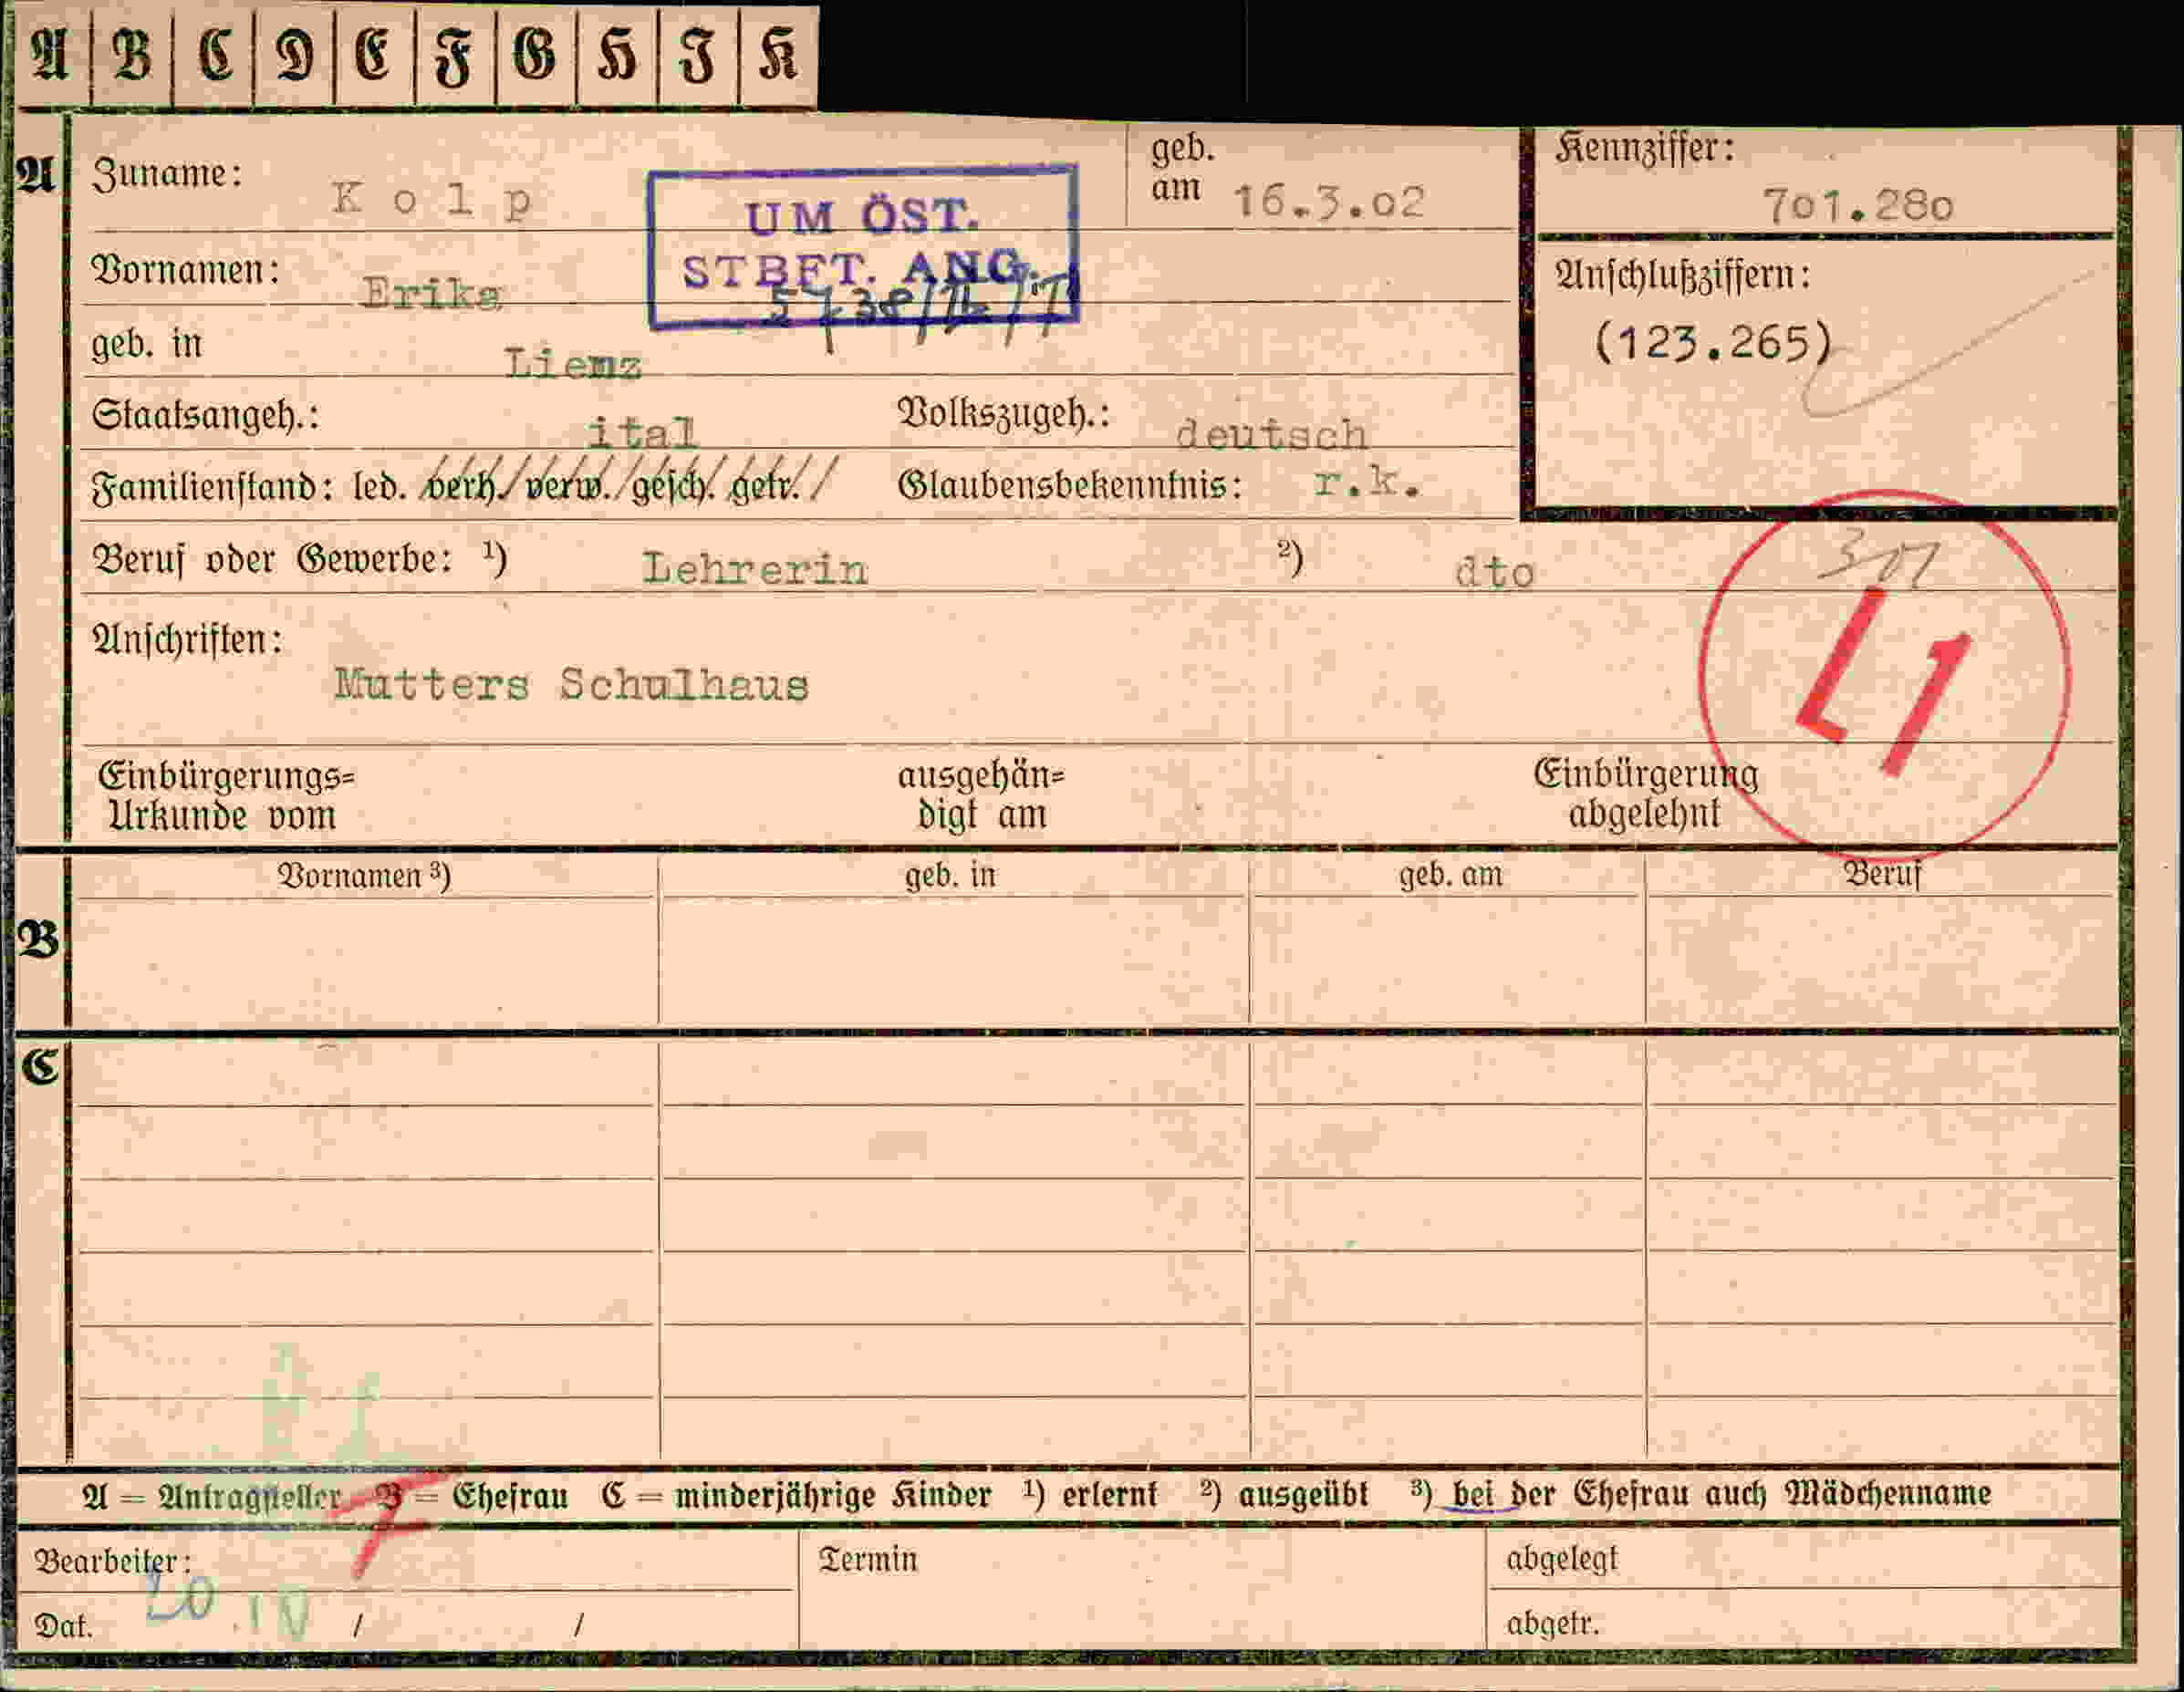 A B C D E F G H I K
A Zuname: Kolp geb. am 16.3.02 Kennziffer: 701.280
UM ÖST.
STBFT. ANG.
Vornamen: Erika Anschlußziffern:
geb. in Lienz (123.265)
Staatsangeh.: ital Volkszugeh.: deutsch
Familienstand: led. verh. verw. gesch. getr. Glaubensbekenntnis: r.k.
Beruf oder Gewerbe: ¹) Lehrerin ²) dto
L1
Anschriften:
Mutters Schulhaus
Einbürgerungs= ausgehän= Einbürgerung
Urkunde vom digt am abgelehnt
Vornamen ³) geb. in geb. am Beruf
B
C
A = Antragsteller B = Ehefrau C = minderjährige Kinder ¹) erlernt ²) ausgeübt ³) bei der Ehefrau auch Mädchenname
Bearbeiter: Termin abgelegt
Dat. 20. IV / / abgetr.